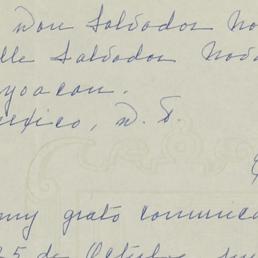 Don Salvador No
lle Salvador Nov
yoacan.
éxico, D. F.
muy grato comunica
25 de Octubre